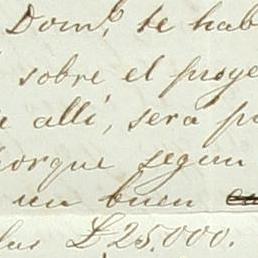 Domº. te hab
sobre el proye
e alli, sera p
porque segun
un buen
las £25.000.